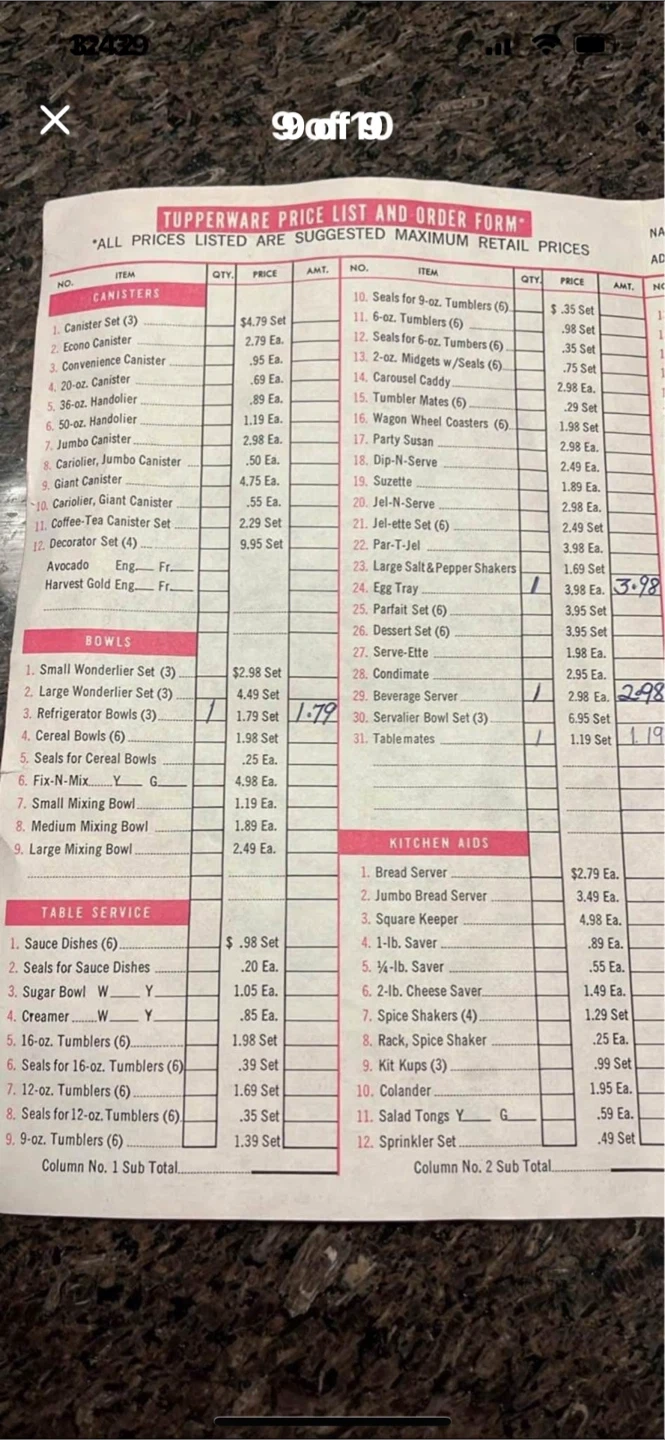 TUPPERWARE PRICE LIST AND ORDER FORM*
*ALL PRICES LISTED ARE SUGGESTED MAXIMUM RETAIL PRICES
NO. ITEM QTY. PRICE AMT.
CANISTERS
1. Canister Set (3) $4.79 Set
2. Econo Canister 2.79 Ea.
3. Convenience Canister .95 Ea.
4. 20-oz. Canister .69 Ea.
5. 36-oz. Handolier .89 Ea.
6. 50-oz. Handolier 1.19 Ea.
7. Jumbo Canister 2.98 Ea.
8. Cariolier, Jumbo Canister .50 Ea.
9. Giant Canister 4.75 Ea.
10. Cariolier, Giant Canister .55 Ea.
11. Coffee-Tea Canister Set 2.29 Set
12. Decorator Set (4) 9.95 Set
Avocado Eng. Fr.
Harvest Gold Eng. Fr.
BOWLS
1. Small Wonderlier Set (3) $2.98 Set
2. Large Wonderlier Set (3) 4.49 Set
3. Refrigerator Bowls (3) 1 1.79 Set 1.79
4. Cereal Bowls (6) 1.98 Set
5. Seals for Cereal Bowls .25 Ea.
6. Fix-N-Mix Y G 4.98 Ea.
7. Small Mixing Bowl 1.19 Ea.
8. Medium Mixing Bowl 1.89 Ea.
9. Large Mixing Bowl 2.49 Ea.
TABLE SERVICE
1. Sauce Dishes (6) $ .98 Set
2. Seals for Sauce Dishes .20 Ea.
3. Sugar Bowl W Y 1.05 Ea.
4. Creamer W Y .85 Ea.
5. 16-oz. Tumblers (6) 1.98 Set
6. Seals for 16-oz. Tumblers (6) .39 Set
7. 12-oz. Tumblers (6) 1.69 Set
8. Seals for 12-oz. Tumblers (6) .35 Set
9. 9-oz. Tumblers (6) 1.39 Set
Column No. 1 Sub Total
NO. ITEM QTY. PRICE AMT.
10. Seals for 9-oz. Tumblers (6) $ .35 Set
11. 6-oz. Tumblers (6) .98 Set
12. Seals for 6-oz. Tumbers (6) .35 Set
13. 2-oz. Midgets w/Seals (6) .75 Set
14. Carousel Caddy 2.98 Ea.
15. Tumbler Mates (6) .29 Set
16. Wagon Wheel Coasters (6) 1.98 Set
17. Party Susan 2.98 Ea.
18. Dip-N-Serve 2.49 Ea.
19. Suzette 1.89 Ea.
20. Jel-N-Serve 2.98 Ea.
21. Jel-ette Set (6) 2.49 Set
22. Par-T-Jel 3.98 Ea.
23. Large Salt & Pepper Shakers 1.69 Set
24. Egg Tray 1 3.98 Ea. 3.98
25. Parfait Set (6) 3.95 Set
26. Dessert Set (6) 3.95 Set
27. Serve-Ette 1.98 Ea.
28. Condimate 2.95 Ea.
29. Beverage Server 1 2.98 Ea. 2.98
30. Servalier Bowl Set (3) 6.95 Set
31. Tablemates 1 1.19 Set 1.19
KITCHEN AIDS
1. Bread Server $2.79 Ea.
2. Jumbo Bread Server 3.49 Ea.
3. Square Keeper 4.98 Ea.
4. 1-lb. Saver .89 Ea.
5. ¼-lb. Saver .55 Ea.
6. 2-lb. Cheese Saver 1.49 Ea.
7. Spice Shakers (4) 1.29 Set
8. Rack, Spice Shaker .25 Ea.
9. Kit Kups (3) .99 Set
10. Colander 1.95 Ea.
11. Salad Tongs Y G .59 Ea.
12. Sprinkler Set .49 Set
Column No. 2 Sub Total
NA
AD
NO